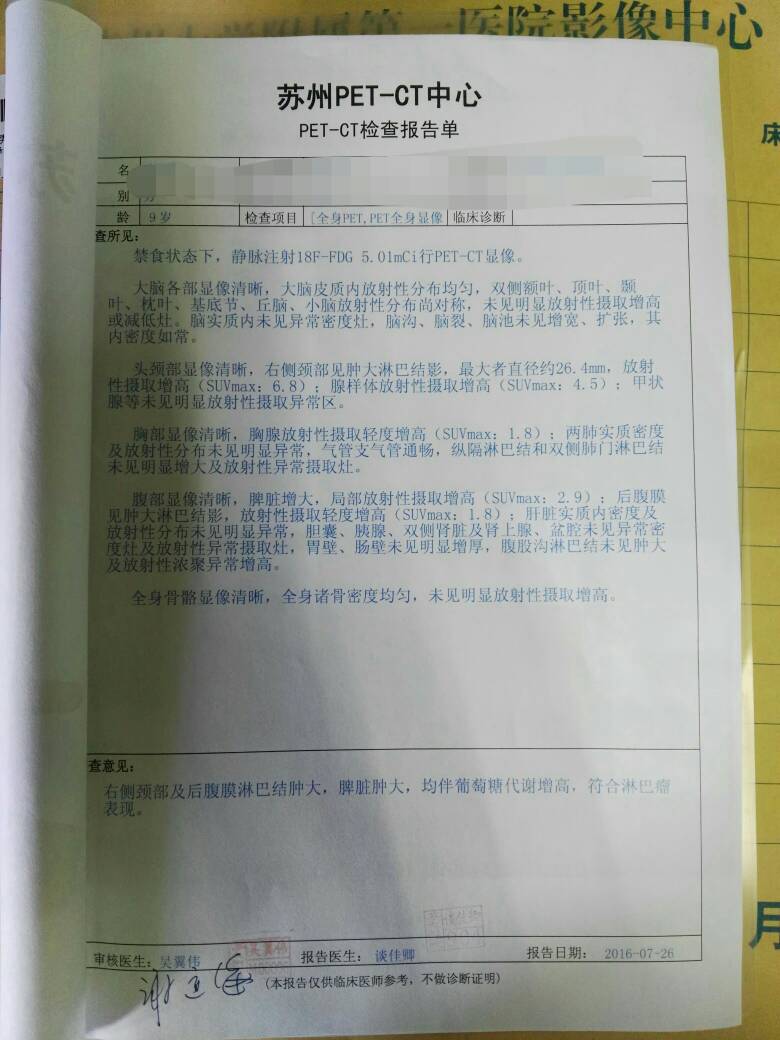 医院影像中心
床
苏州PET-CT中心
PET-CT检查报告单
名
别
龄 9岁 检查项目 [全身PET,PET全身显像 临床诊断
查所见:
禁食状态下，静脉注射18F-FDG 5.01mCi行PET-CT显像。
大脑各部显像清晰，大脑皮质内放射性分布均匀，双侧额叶、顶叶、颞
叶、枕叶、基底节、丘脑、小脑放射性分布尚对称，未见明显放射性摄取增高
或减低灶。脑实质内未见异常密度灶，脑沟、脑裂、脑池未见增宽、扩张，其
内密度如常。
头颈部显像清晰，右侧颈部见肿大淋巴结影，最大者直径约26.4mm，放射
性摄取增高（SUVmax：6.8）；腺样体放射性摄取增高（SUVmax：4.5）；甲状
腺等未见明显放射性摄取异常区。
胸部显像清晰，胸腺放射性摄取轻度增高（SUVmax：1.8）；两肺实质密度
及放射性分布未见明显异常，气管支气管通畅，纵隔淋巴结和双侧肺门淋巴结
未见明显增大及放射性异常摄取灶。
腹部显像清晰，脾脏增大，局部放射性摄取增高（SUVmax：2.9）；后腹膜
见肿大淋巴结影，放射性摄取轻度增高（SUVmax：1.8）；肝脏实质内密度及
放射性分布未见明显异常，胆囊、胰腺、双侧肾脏及肾上腺、盆腔未见异常密
度灶及放射性异常摄取灶，胃壁、肠壁未见明显增厚，腹股沟淋巴结未见肿大
及放射性浓聚异常增高。
全身骨骼显像清晰，全身诸骨密度均匀，未见明显放射性摄取增高。
查意见:
右侧颈部及后腹膜淋巴结肿大，脾脏肿大，均伴葡萄糖代谢增高，符合淋巴瘤
表现。
月
审核医生: 吴翼伟 报告医生: 谈佳卿 报告日期: 2016-07-26
(本报告仅供临床医师参考，不做诊断证明)